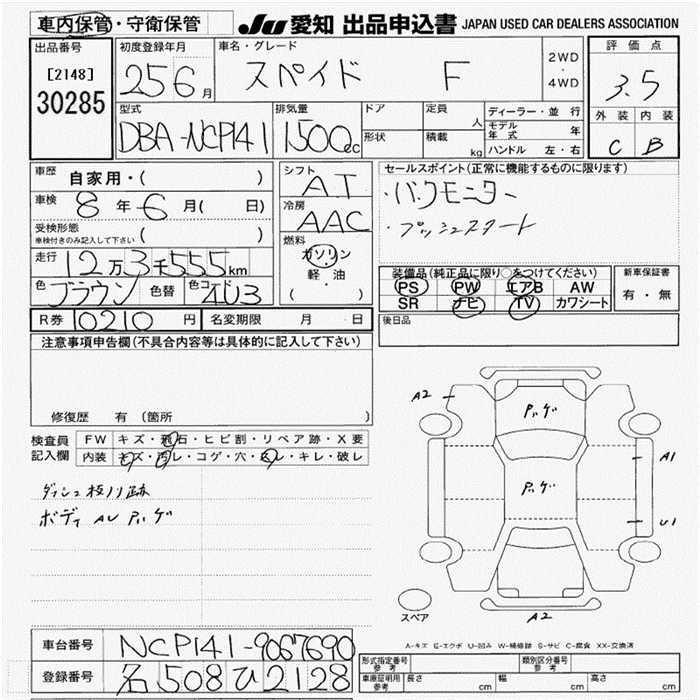 車内保管・守衛保管 JU 愛知 出品申込書 JAPAN USED CAR DEALERS ASSOCIATION
出品番号 [2148] 30285
初度登録年月 25 6 月
車名・グレード スペイド F
2WD ・ 4WD
評価点 3.5
外装 内装
C B
型式 DBA-NCP141
排気量 1500cc
ドア 形状
定員 人
積載 kg
ディーラー・並行
モデル年式 年
ハンドル 左・右
車歴 自家用・( )
車検 8 年 6 月( 日)
受検形態 ( )
車検付きのみ記入して下さい
走行 12万3千555km
色 ブラウン 色替 色コード 4U3
シフト AT
冷房 AAC
燃料 ガソリン ・ 軽・油 ( )
セールスポイント(正常に機能するものに限ります)
・バックモニター
・プッシュスタート
装備品(純正品に限り○をつけてください)
PS PW エアB AW
SR ナビ TV カワシート
新車保証書
有・無
R券 0210 円 名変期限 月 日
後日品
注意事項申告欄(不具合内容等は具体的に記入して下さい)
修復歴 有 (箇所 )
検査員記入欄
FW キズ・飛石・ヒビ割・リペア跡・X要
内装 キズ・汚レ・コゲ・穴・スレ・キレ・破レ
ダッシュ
ボディ AU
A2
A1
U1
A2
スペア
A-キズ E-エクボ U-凹み W-補修跡 S-サビ C-腐食 XX-交換済
車台番号 NCP141-9067690
登録番号 名 508 ひ 2128
形式指定番号 参考
類別区分番号 参考
車庫証明用 参考 長さ cm 幅 cm 高さ cm